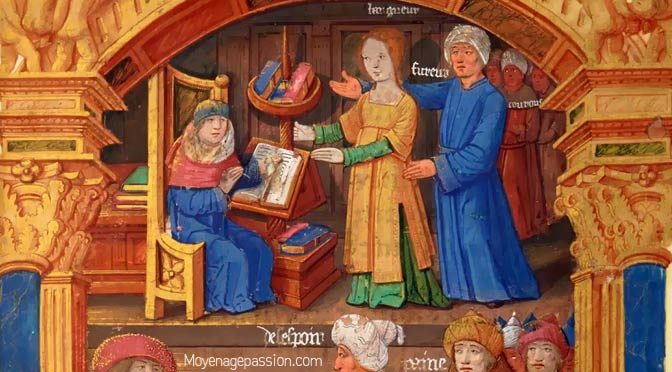 langueur
fureur
courous
desespoir
peine
Moyenagepassion.com